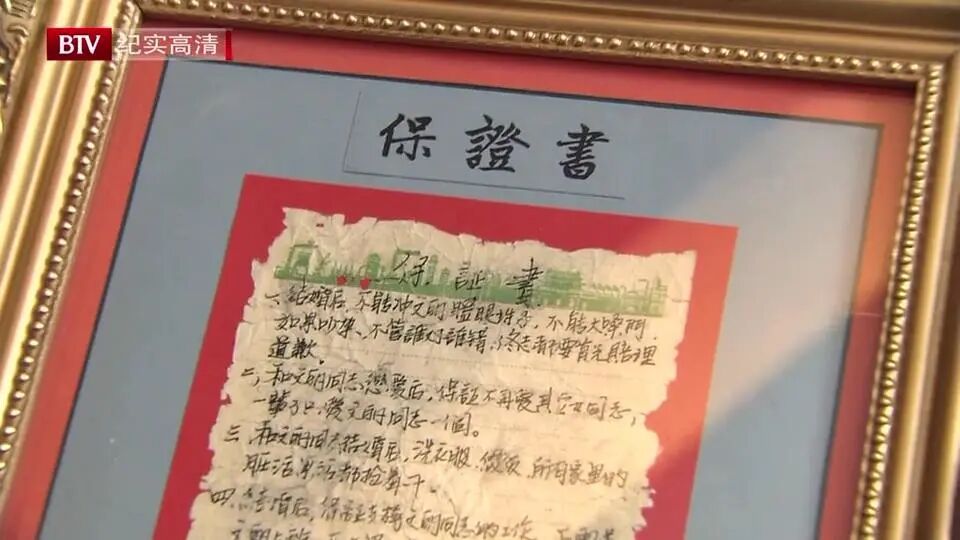 BTV 纪实高清
保證書
保 証 書
一、结婚后,不能冲文明瞪眼珠子,不能大嗓门,
如果吵架、不管誰对誰錯,佟志都要首先賠理
道歉。
二、和文明同志恋爱后,保証不再愛其它女同志,
一輩子只愛文明同志一個。
三、和文明同志结婚后,洗衣服、做饭、所有家里的
脏活累活都抢着干。
四、结婚后,保証支持文明同志的工作